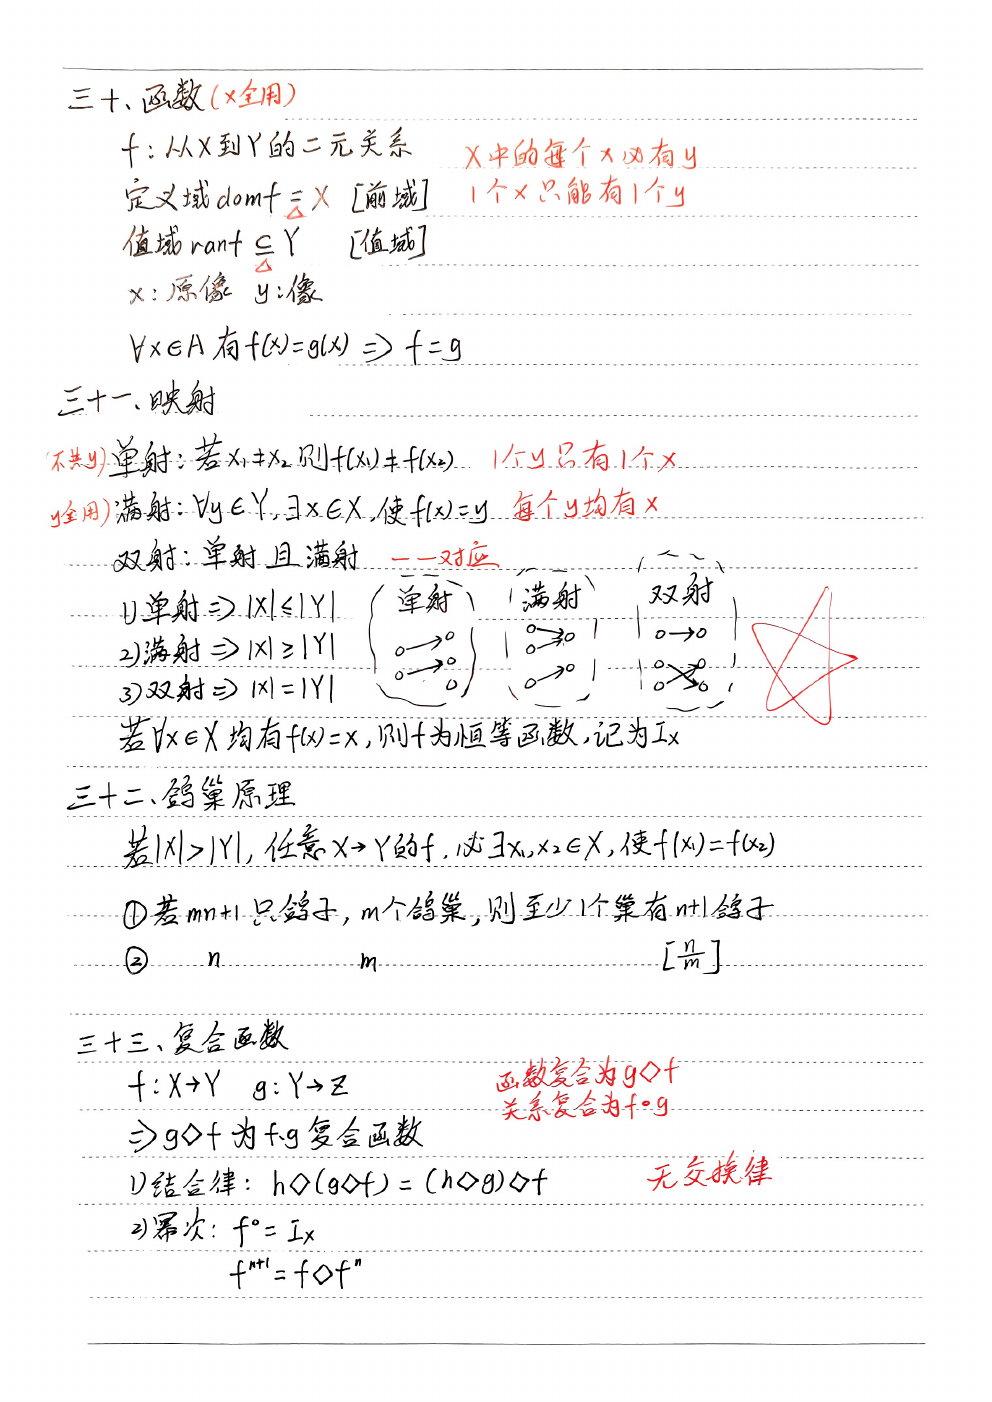 三十、函数(x全用)
f:从X到Y的二元关系 X中的每个x必有y
定义域domf = X [前域] 1个x只能有1个y
值域ranf ⊆ Y [值域]
x:原像 y:像
∀x∈A 有f(x)=g(x) ⇒ f=g
三十一、映射
(不共y) 单射:若x₁≠x₂ 则f(x₁)≠f(x₂) 1个y只有1个x
y全用) 满射:∀y∈Y,∃x∈X,使f(x)=y 每个y均有x
双射:单射且满射 一一对应
单射 满射 双射
1)单射⇒|X|≤|Y|
2)满射⇒|X|≥|Y|
3)双射⇒|X|=|Y|
若∀x∈X均有f(x)=x,则f为恒等函数,记为Iₓ
三十二、鸽巢原理
若|X|>|Y|,任意X→Y的f,必∃x₁,x₂∈X,使f(x₁)=f(x₂)
①若mn+1只鸽子,m个鸽巢,则至少1个巢有n+1鸽子
② n m [n/m]
三十三、复合函数
f:X→Y g:Y→Z 函数复合为g◇f
关系复合为f∘g
⇒g◇f为f、g复合函数
1)结合律:h◇(g◇f)=(h◇g)◇f 无交换律
2)幂次:f⁰=Iₓ
fⁿ⁺¹=f◇fⁿ